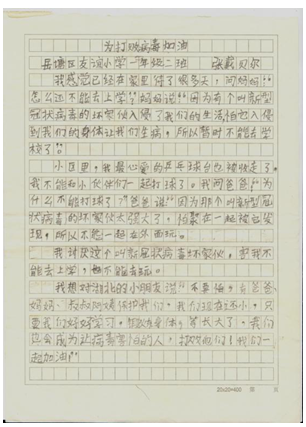 为打败病毒加油
岳塘区友谊小学一年级二班 张戴贝尔
我感觉已经在家里待了很多天,问妈妈“
怎么还不能去上学”妈妈说“因为有个叫新型
冠状病毒的坏家伙入侵了我们的生活怕也入侵
到我们的身体让我们生病,所以暂时不能去学
校了”
小区里,我最心爱的乒乓球台也被收走了,
我不能和小伙伴们一起打球了。我问爸爸“为
什么不能打球了?”爸爸说“因为那个叫新型冠
状病毒的坏家伙太强大了,怕聚在一起被它发
现,所以不能一起在外面玩。
我讨厌这个叫新冠状病毒坏家伙,害我不
能去上学,也不能去玩。
我想对湖北的小朋友说“不要怕,有爸爸
妈妈、叔叔阿姨保护我们,我们现在还小,只
要我们好好学习,锻炼身体,等长大了,我们
也会成为让病毒害怕的人,打败他们!我们一
起加油!”
20×20=400 第 页